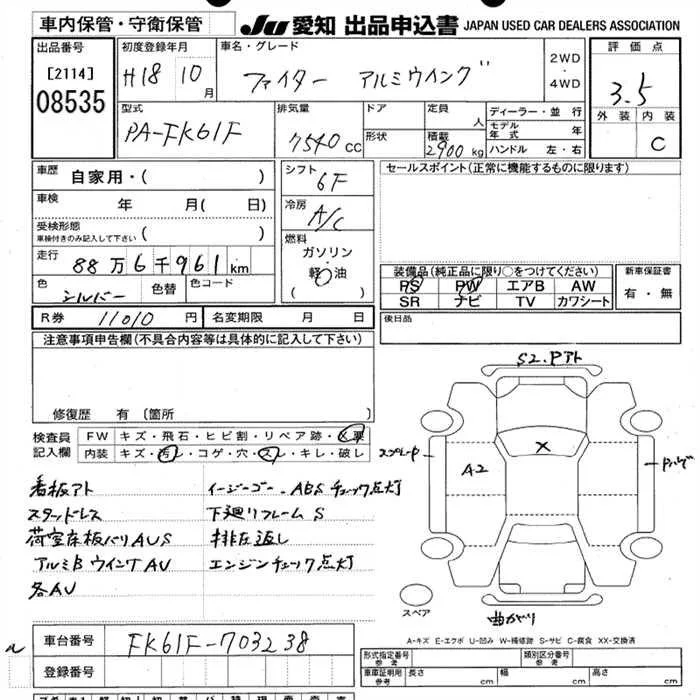 車内保管・守衛保管
JU 愛知 出品申込書 JAPAN USED CAR DEALERS ASSOCIATION
出品番号
[2114]
08535
初度登録年月
H18 10月
車名・グレード
ファイター アルミウイング
2WD
・
4WD
評価点
3.5
外装 内装
C
型式
PA-FK61F
排気量
7540 cc
ドア
形状
定員
人
積載
2900 kg
ディーラー・並行
モデル年式 年
ハンドル 左・右
車歴
自家用・( )
車検
年 月( 日)
受検形態
車検付きのみ記入して下さい ( )
走行
88万6千961km
色
シルバー
色替
色コード
シフト
6F
冷房
A/C
燃料
ガソリン
・
軽油
( )
セールスポイント(正常に機能するものに限ります)
装備品(純正品に限り○をつけてください)
PS PW エアB AW
SR ナビ TV カワシート
新車保証書
有・無
R券 11010 円 名変期限 月 日
後日品
注意事項申告欄(不具合内容等は具体的に記入して下さい)
修復歴 有 〔箇所
検査員
記入欄
FW キズ・飛石・ヒビ割・リペア跡・X要
内装 キズ・汚レ・コゲ・穴・スレ・キレ・破レ
看板アト
スタッドレス
荷室床板バリAUS
アルミBウイングAU
各AU
イージーゴー、ABSチェック点灯
下廻リフレームS
排在返し
エンジンチェック点灯
S2.Pアト
A2
X
曲がり
スペア
A-キズ E-エクボ U-凹み W-補修跡 S-サビ C-腐食 XX-交換済
車台番号
FK61F-703238
登録番号
形式指定番号
参考
類別区分番号
参考
車庫証明用
参考
長さ cm
幅 cm
高さ cm